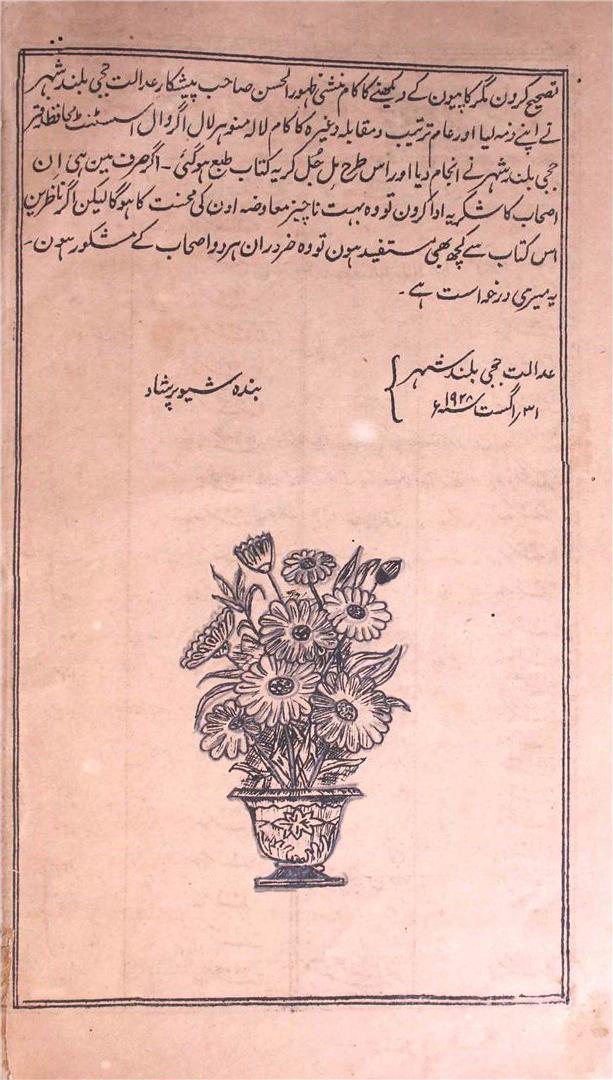 تصحیح کرون مگر کاپیون کے دیکھنے کا کام منشی ظہور الحسن صاحب پیشکار عدالت ججی بلند شہر
نے اپنے ذمہ لیا اور عام ترتیب و مقابلہ وغیرہ کا کام لالہ منوہر لال اگروال اسسٹنٹ محافظ دفتر
ججی بلند شہر نے انجام دیا اور اس طرح مل جُل کر یہ کتاب طبع ہو گئی ۔ اگر صرف مین ہی اِن
اصحاب کا شکریہ ادا کرون تو وہ بہت ناچیز معاوضہ اون کی محنت کا ہوگا لیکن اگر ناظرین
اس کتاب سے کچھ بھی مستفید ہون تو وہ ضرور ان ہر دو اصحاب کے مشکور ہون ۔
یہ میری درخواست ہے ۔
عدالت ججی بلند شہر
۳۱؍ اگست سنہ ۱۹۲۸ء
بندہ شیو پرشاد